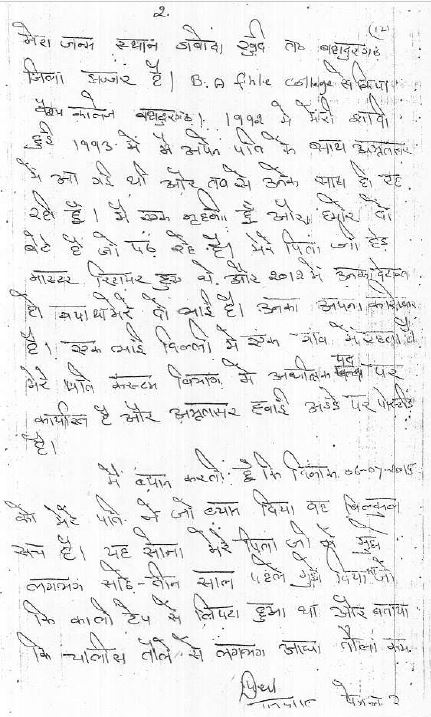 2.
(12)
मेरा जन्म स्थान खुर्द तह बहादुरगढ़
जिला झज्जर है। B.A college से किया
कालेज बहादुरगढ़। 1992 में मेरी शादी
हुई 1993 में मैं अपने पति के साथ अमृतसर
में आ गई थी और तब से उनके साथ ही रह
रही हूँ। मैं एक गृहणी हूँ और हमारे दो
बेटे है जो पढ़ रहे है। मेरे पिता जी हेड
मास्टर रिटायर हुए थे. और 2012 में उनका देहान्त
हो गया था मेरे दो भाई है। उनका अपना कारोबार
है। एक भाई दिल्ली में एक गांव में रहता है
मेरे पति कस्टम विभाग में अधीक्षक पद पर
कार्यरत है और अमृतसर हवाई अड्डे पर पोस्टेड
है।
मैं बयान करती हूँ कि दिनांक 06-07-2015
को मेरे पति ने जो ब्यान दिया वह बिल्कुल
सच है। यह सोना मेरे पिता जी ने मुझे
लगभग साढ़े-तीन साल पहले मुझे दिया जो
कि काली टेप से लिपटा हुआ था और बताया
कि चालीस तोले से लगभग आधा तोला कम
पेज न० 2